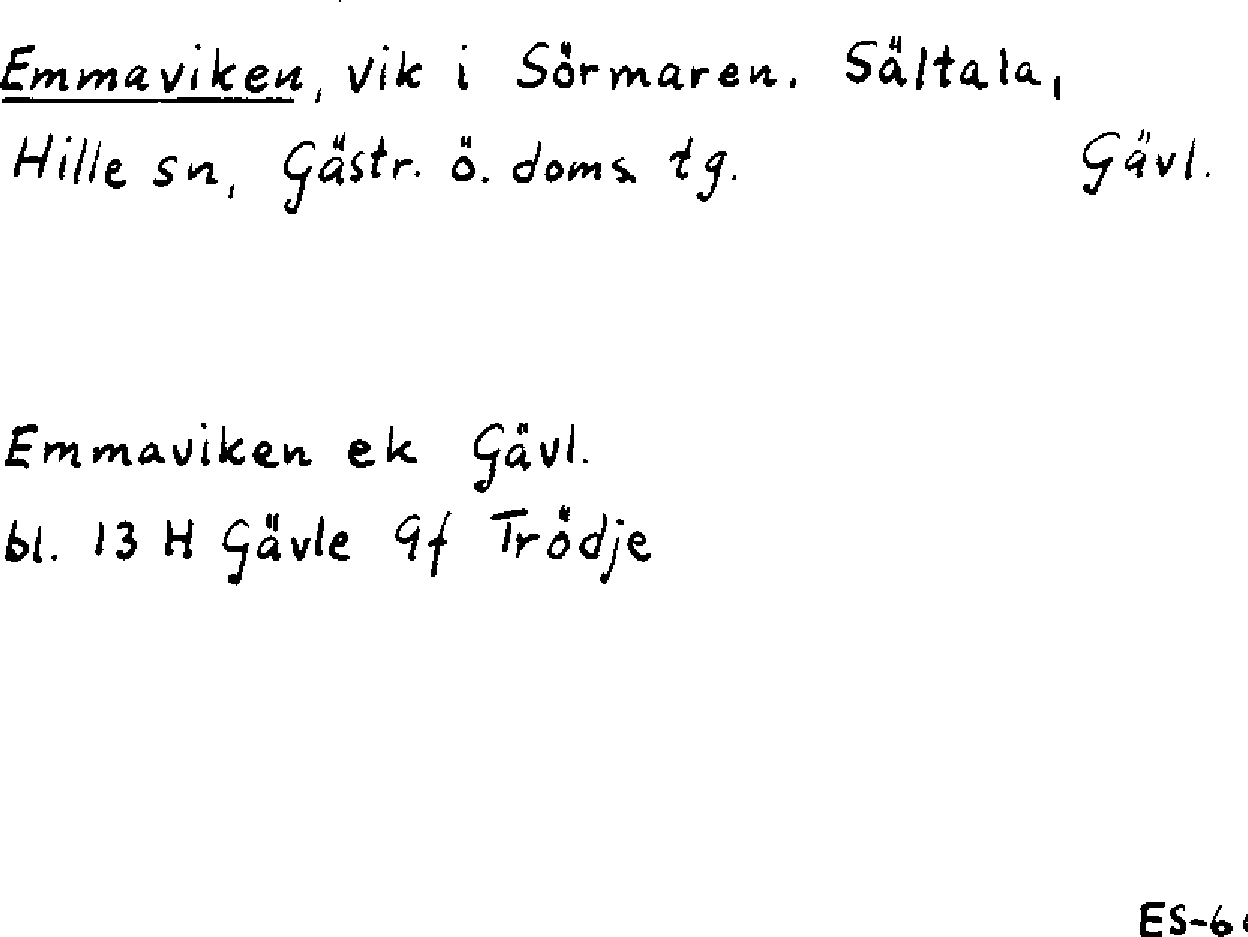 Emmaviken, vik i Sörmaren. Sältala,
Hille sn, Gästr. ö. doms tg. Gävl.
Emmaviken ek Gävl.
bl. 13 H Gävle 9f Trödje